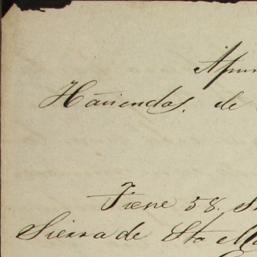 Apun
Haciendas, de
Tiene 58. S
Sierra de Sta Ma